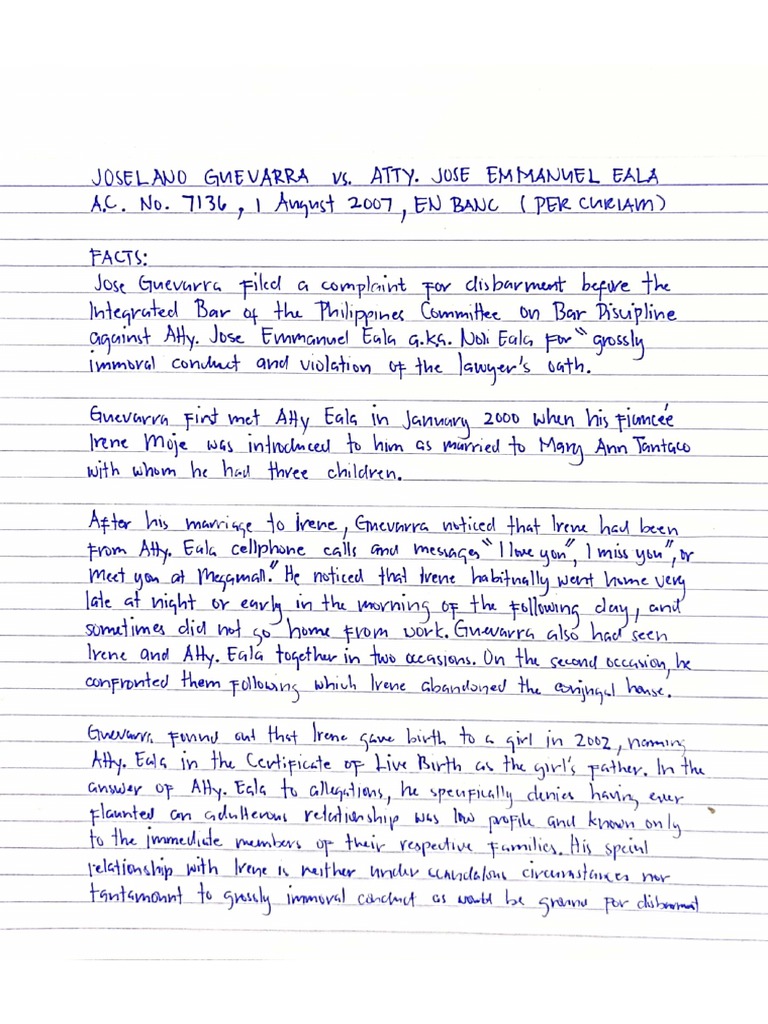 JOSELANO GUEVARRA vs. ATTY. JOSE EMMANUEL EALA
A.C. No. 7136, 1 August 2007, EN BANC (PER CURIAM)
FACTS:
Jose Guevarra filed a complaint for disbarment before the
Integrated Bar of the Philippines Committee on Bar Discipline
against Atty. Jose Emmanuel Eala a.k.a. Noli Eala for "grossly
immoral conduct and violation of the lawyer's oath.
Guevarra first met Atty Eala in January 2000 when his fianceé
Irene Moje was introduced to him as married to Mary Ann Tantaco
with whom he had three children.
After his marriage to Irene, Guevarra noticed that Irene had been
from Atty. Eala cellphone calls and messages "I love you", I miss you", or
Meet you at Megamall." He noticed that Irene habitually went home very
late at night or early in the morning of the following day, and
sometimes did not go home from work. Guevarra also had seen
Irene and Atty. Eala together in two occasions. On the second occasion, he
confronted them following which Irene abandoned the conjugal house.
Guevarra found out that Irene gave birth to a girl in 2002, naming
Atty. Eala in the Certificate of Live Birth as the girl's father. In the
answer of Atty. Eala to allegations, he specifically denies having ever
flaunted an adulterous relationship was low profile and known only
to the immediate members of their respective families. His special
relationship with Irene is neither under scandalous circumstances nor
tantamount to grossly immoral conduct as would be ground for disbarment